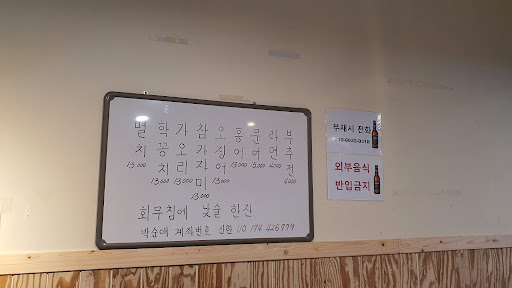 멸치 15,000
학꽁치 13,000
가오리 13,000
참가자미 13,000
오징어 13,000
홍어 13,000
문어 13,000
라면 4,000
부추전 4,000
회무침에 낮술 한잔
박순애 계좌번호 신한 110 194 426779
부재시 전화
외부음식
반입금지